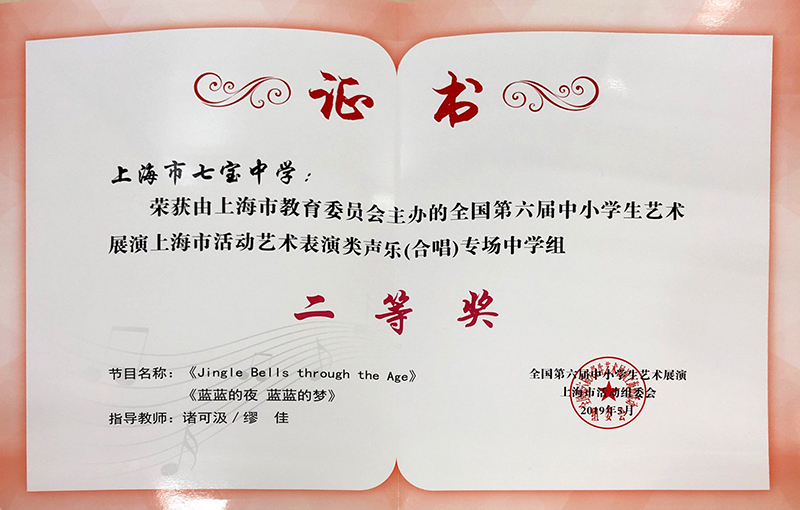 证 书
上海市七宝中学：
荣获由上海市教育委员会主办的全国第六届中小学生艺术
展演上海市活动艺术表演类声乐(合唱)专场中学组
二 等 奖
节目名称：《Jingle Bells through the Age》
《蓝蓝的夜 蓝蓝的梦》
指导教师：诸可汲/缪 佳
全国第六届中小学生艺术展演
上海市活动组委会
2019年5月